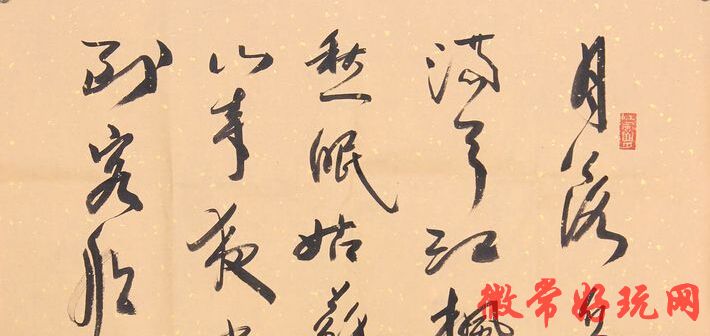 月落
滿天江楓
愁眠姑蘇
山寺夜
到客船
微常好玩网